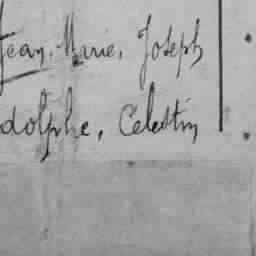 Jean, Marie, Joseph
dolphe, Celestin